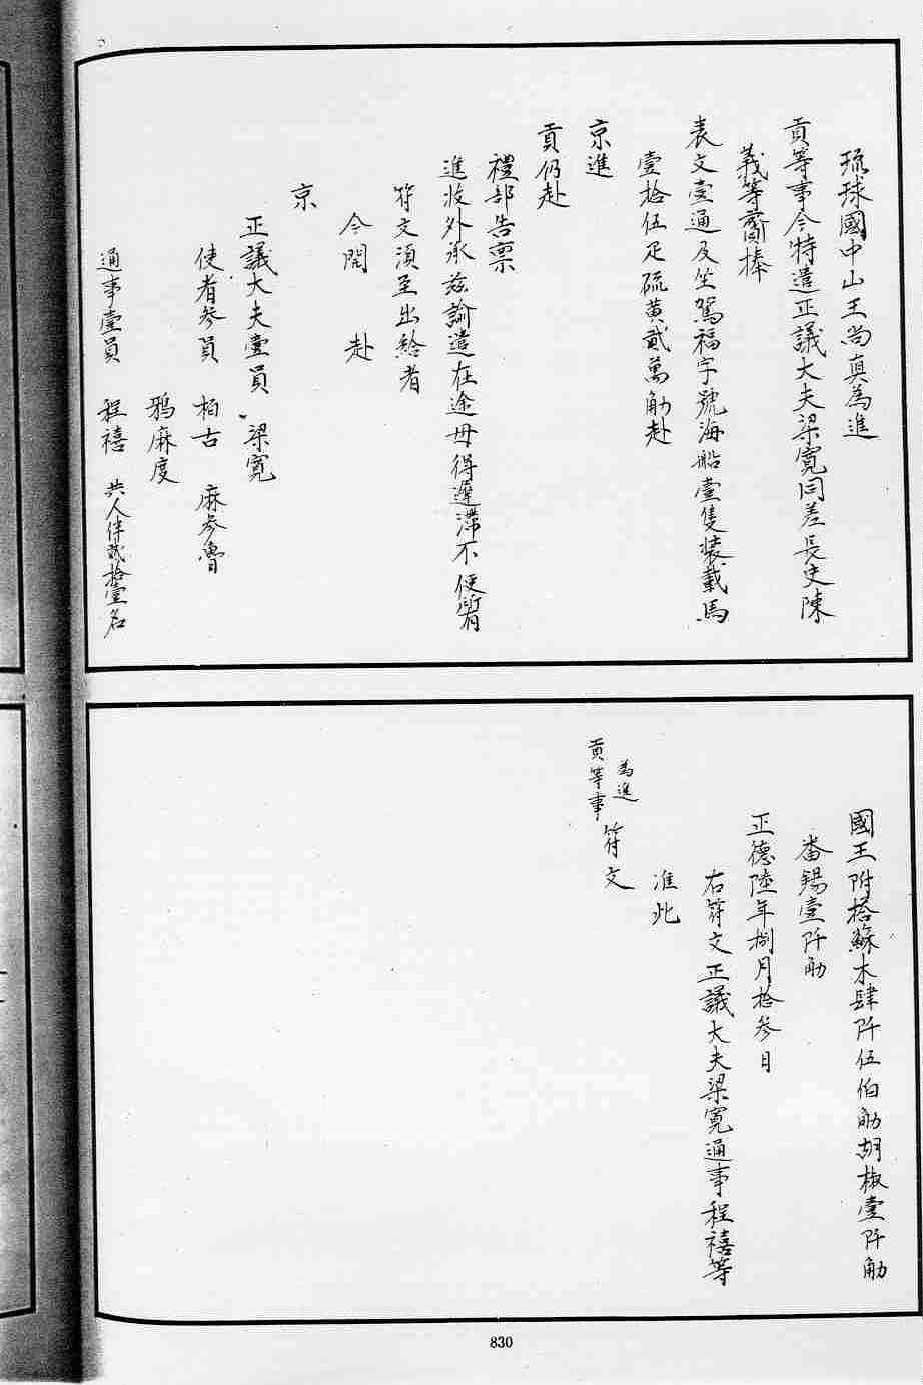 琉球國中山王尚真為進
貢等事今特遣正議大夫梁寬同差長史陳
義等齎捧
表文壹通及坐駕福字號海船壹隻裝載馬
壹拾伍疋硫黄貳萬觔赴
京進
貢仍赴
禮部告稟
進收外承兹諭遣在途毋得遲滯不便所有
符文須至出給者
今開 赴
京
正議大夫壹員 梁寬
使者參員 柏古 麻參魯
鴉麻度
通事壹員 程禧 共人伴貳拾壹名
國王附搭蘇木肆阡伍伯觔胡椒壹阡觔
番錫壹阡觔
正德陸年捌月拾參日
右符文正議大夫梁寬通事程禧等
准此
為進
貢等事
符文
830